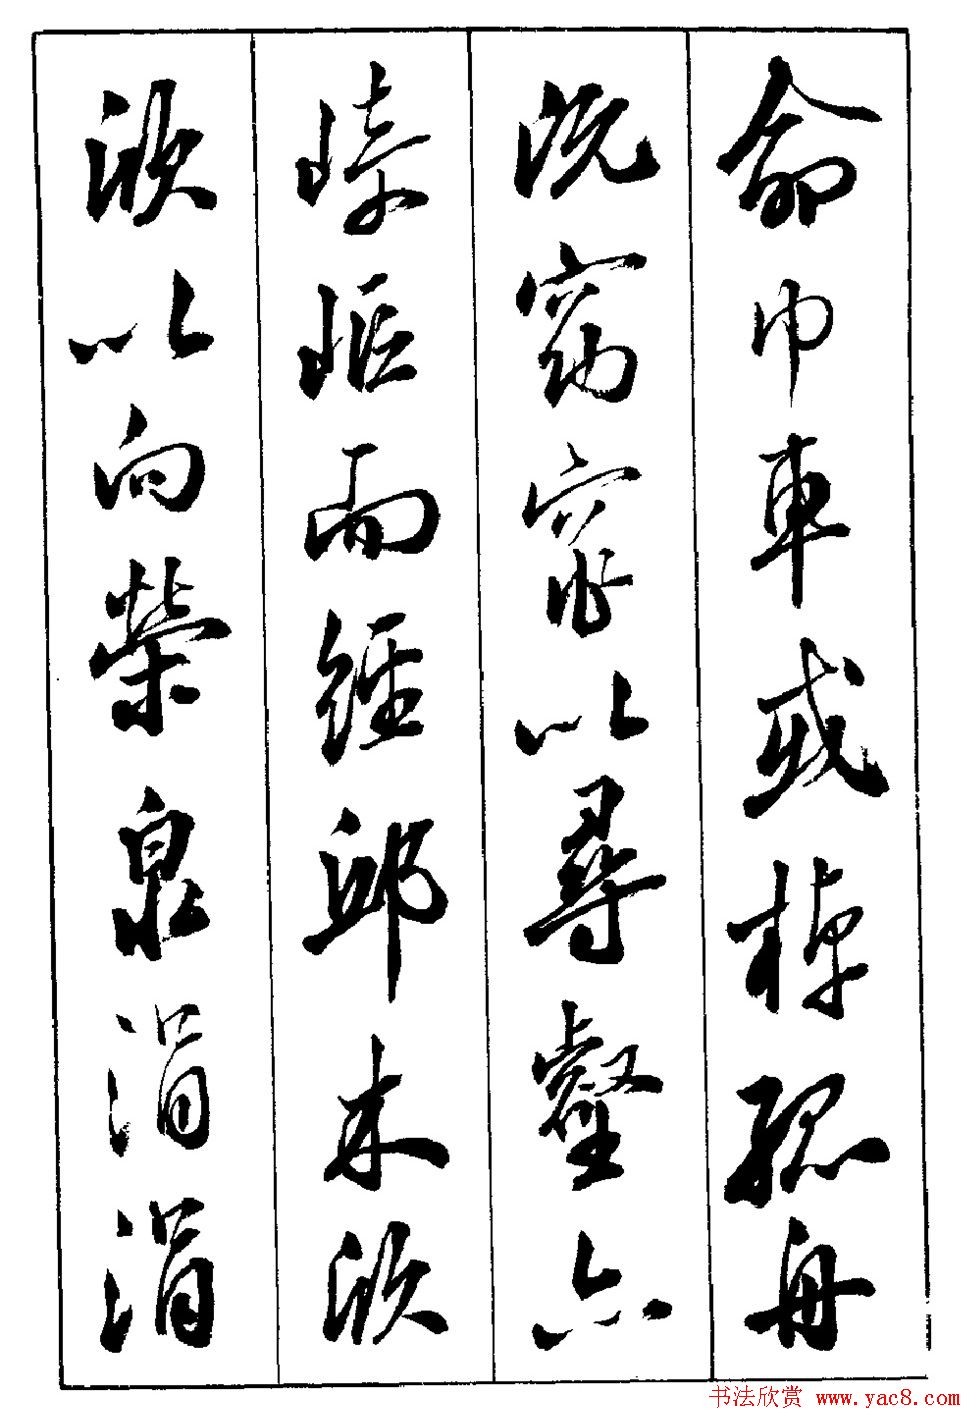 命巾車或棹孤舟
既窈窕以尋壑亦
崎嶇而經邱木欣
欣以向榮泉涓涓
书法欣赏 www.yac8.com